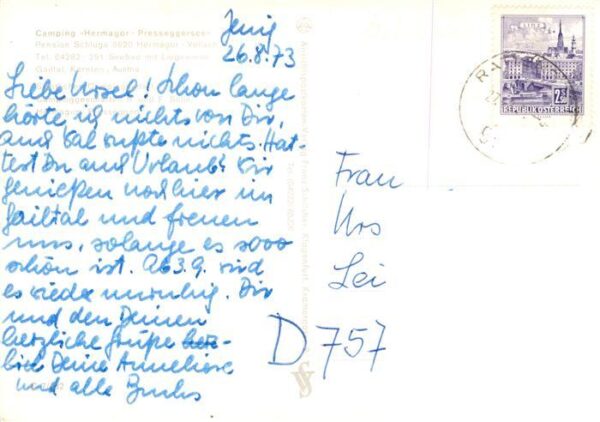 Camping »Hermagor - Presseggersee«
Pension Schluga 9620 Hermagor - Vellach
Tel. 04282 - 251 Seebad mit Liegewiese
Gailtal, Kärnten, Austria
Jenig
26.8.73
Liebe Ursel! Schon lange
hörte ich nichts von Dir,
und Gal wußte nichts. Hat-
test Du auch Urlaub? Wir
genießen noch hier im
Gailtal und freuen
uns, solange es sooo
schön ist. Ab 3.9. wird
es wieder unruhig. Dir
und den Deinen
herzliche Grüße
Deine Anneliese
und alle Fuchs
REPUBLIK ÖSTERREICH
Frau
Urs
Lei
D 757